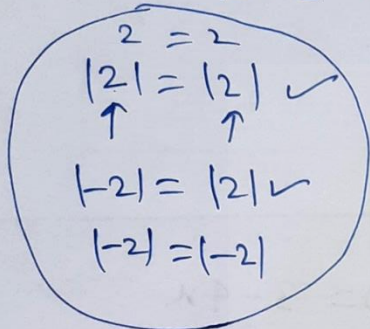 2 = 2
|2| = |2| ✓
↑ ↑
|-2| = |2| ✓
|-2| = |-2|